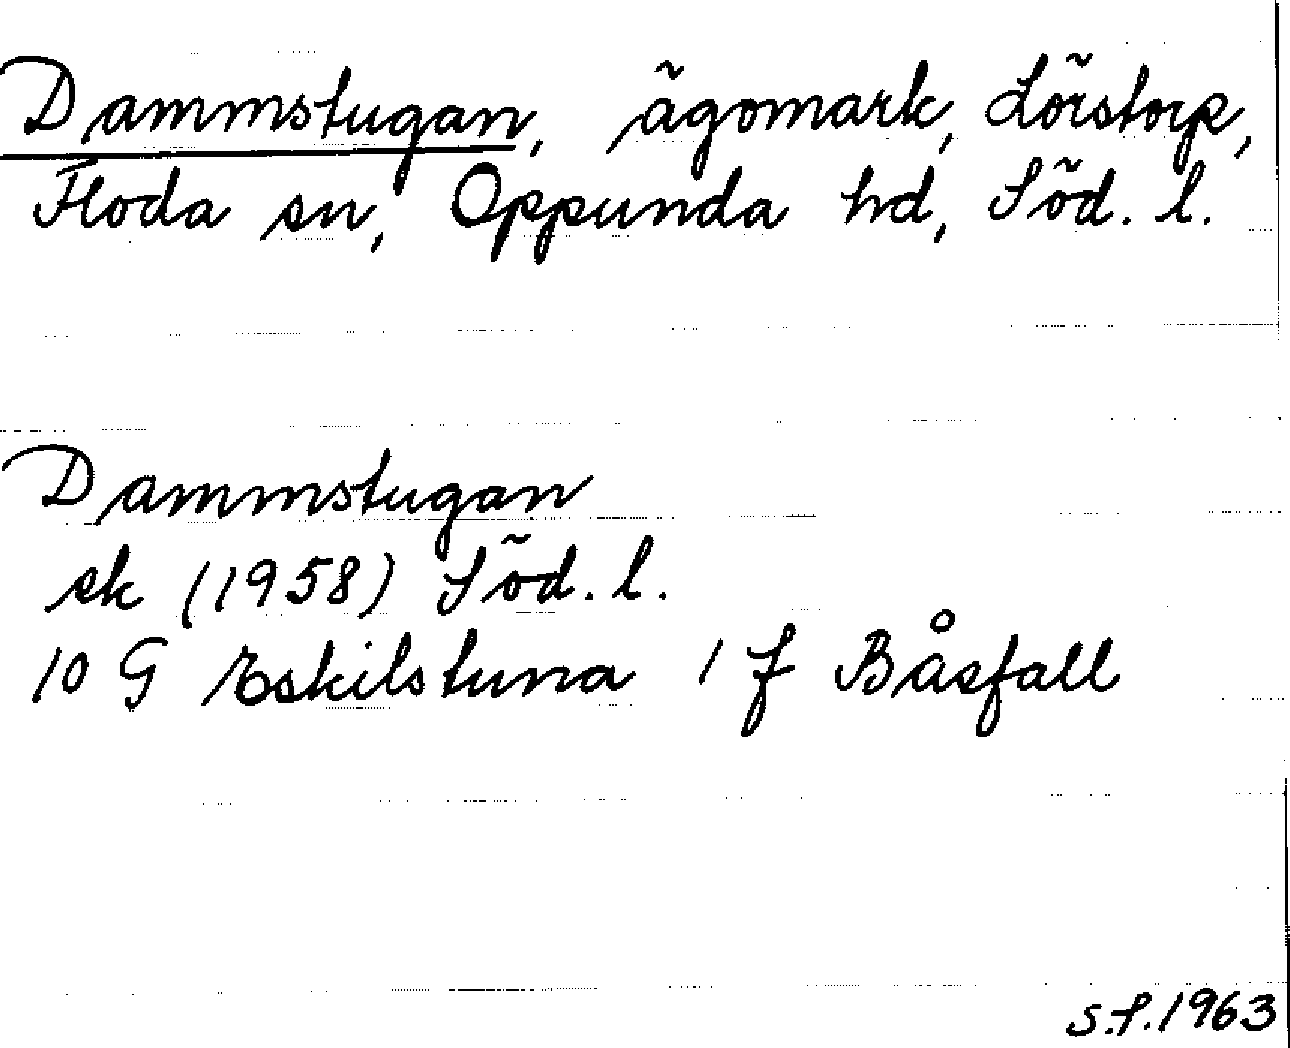 Dammstugan, ägomark, Lörstorp,
Floda sn, Oppunda hd, Söd. l.
Dammstugan
sk (1958) Söd. l.
10 G Eskilstuna 1 f Båsfall
S.f. 1963